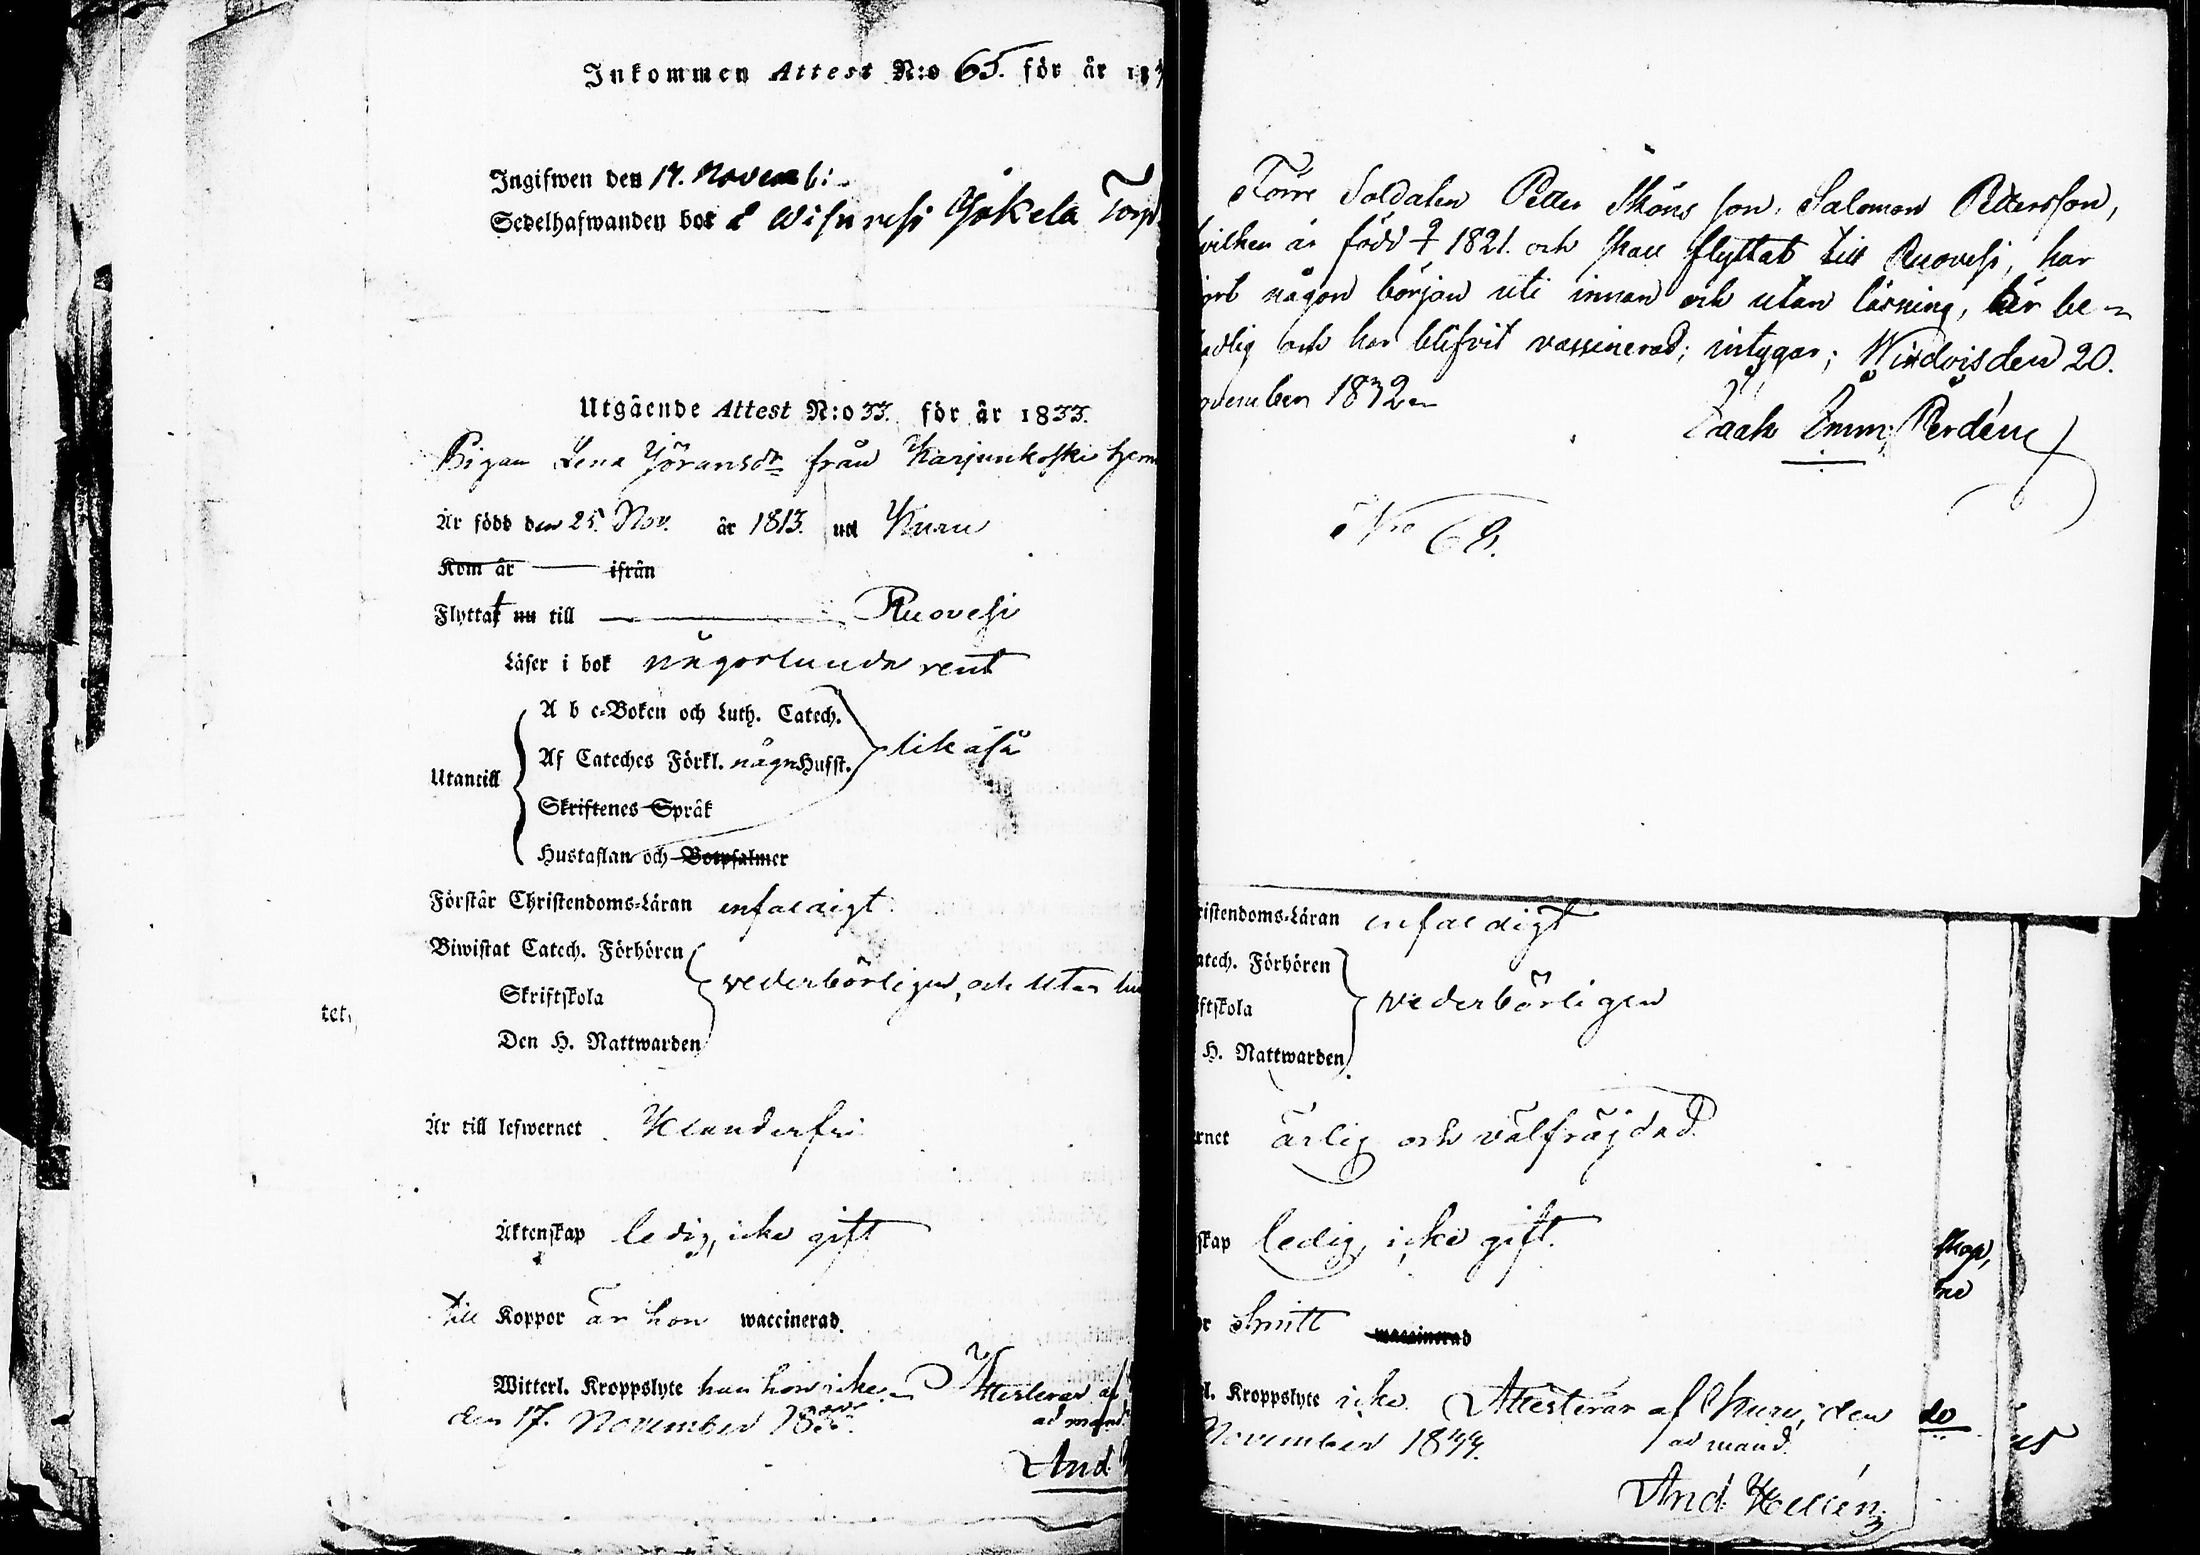 Inkommen Attest N:o 65. för år 18
Ingifwen den 17. Novemb:
Sedelhafwanden bor å Wisuvesi Jokela Torp
Utgående Attest N:o 33. för år 1833.
Pigan Lena Jöransdr från Karjunkoski hem
Är född den 25. Nov. år 1813. uti Kuru
Kom år ifrån
Flyttat nu till Ruovesi
Läser i bok någorlunda rent
Utantill
A b c-Boken och Luth. Catech.
Af Cateches Förkl. någr Husst.
likaså
Skriftenes Språk
Hustaflan och Botpsalmer
Förstår Christendoms-Läran enfaldigt
Biwistat Catech. Förhören
Skriftskola
Den H. Nattwarden
vederbörligen, och utan
tet,
Är till lefwernet Klanderfri
Äktenskap ledig, icke gift
till Koppor är hon waccinerad.
Witterl. Kroppslyte han hon icke. Attesterar af
den 17. November 1833.
ad mand.
And.
Förre Soldaten Petter Sköns son, Salomon Pettersson,
vilken är född 1821. och skall flyttat till Ruovesi, har
jort någon början uti innan och utan läsning, är be-
och har blifvit vaccinerad; intygar; Windois den 20.
ovember 1832.
Isaak Emm: Perdén
No 69.
ristendoms-Läran enfaldigt
atech. Förhören
iftskola
H. Nattwarden
vederbörligen
rnet ärlig och välfräjdad.
skap ledig, icke gift.
or smitt waccinerad
l. Kroppslyte icke. Attesterar af Kuru, den 20
November 1833.
ad mand.
And. Hellén
skap,
ne